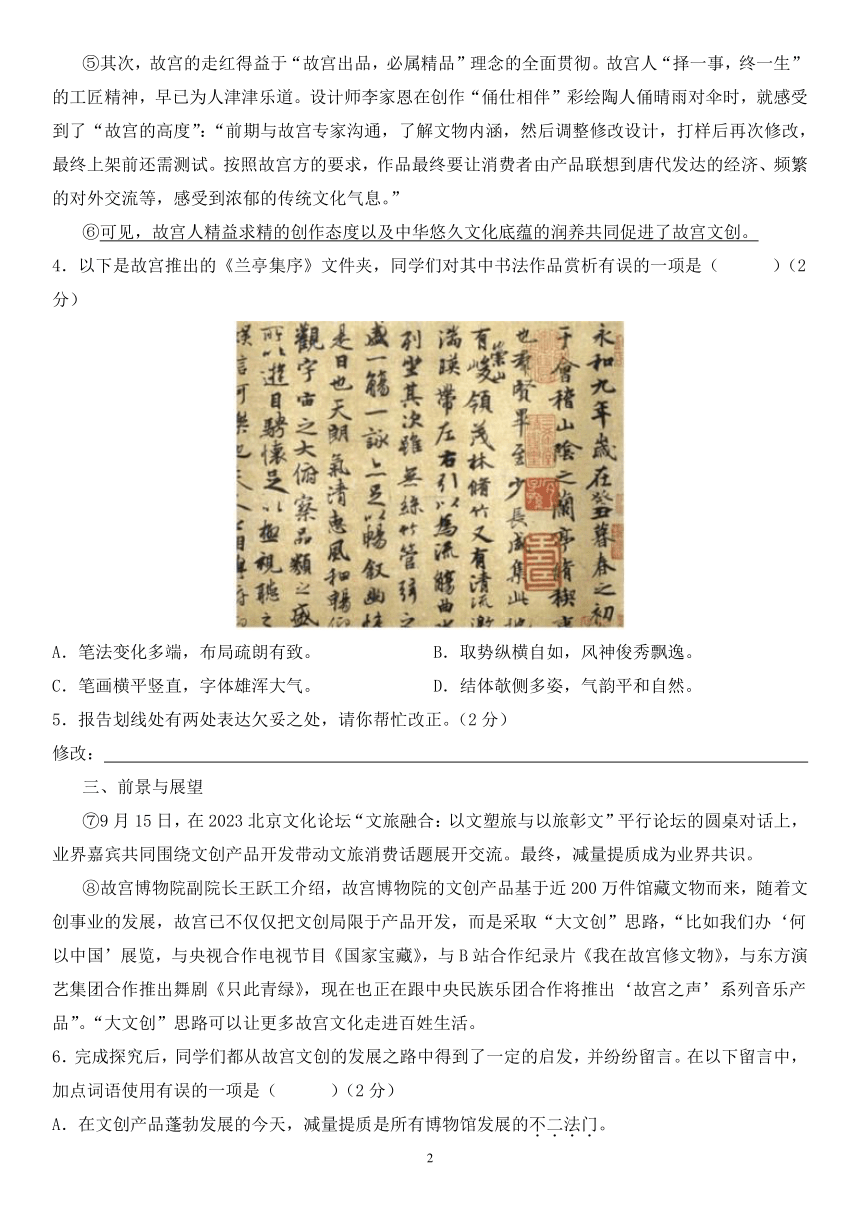 ⑤其次，故宫的走红得益于“故宫出品，必属精品”理念的全面贯彻。故宫人“择一事，终一生”
的工匠精神，早已为人津津乐道。设计师李家恩在创作“俑仕相伴”彩绘陶人俑晴雨对伞时，就感受
到了“故宫的高度”：“前期与故宫专家沟通，了解文物内涵，然后调整修改设计，打样后再次修改，
最终上架前还需测试。按照故宫方的要求，作品最终要让消费者由产品联想到唐代发达的经济、频繁
的对外交流等，感受到浓郁的传统文化气息。”
⑥可见，故宫人精益求精的创作态度以及中华悠久文化底蕴的润养共同促进了故宫文创。
4．以下是故宫推出的《兰亭集序》文件夹，同学们对其中书法作品赏析有误的一项是（　　）（2
分）
永和九年歲在癸丑暮春之初
于會稽山陰之蘭亭脩稧事
也羣賢畢至少長咸集此地
有崇山峻領茂林脩竹又有清流激
湍暎帶左右引以為流觴曲水
列坐其次雖無絲竹管弦之
盛一觴一詠亦足以暢叙幽情
是日也天朗氣清惠風和暢仰
觀宇宙之大俯察品類之盛
所以遊目騁懷足以極視聽之
A．笔法变化多端，布局疏朗有致。
B．取势纵横自如，风神俊秀飘逸。
C．笔画横平竖直，字体雄浑大气。
D．结体欹侧多姿，气韵平和自然。
5．报告划线处有两处表达欠妥之处，请你帮忙改正。（2分）
修改：
三、前景与展望
⑦9月15日，在2023北京文化论坛“文旅融合：以文塑旅与以旅彰文”平行论坛的圆桌对话上，
业界嘉宾共同围绕文创产品开发带动文旅消费话题展开交流。最终，减量提质成为业界共识。
⑧故宫博物院副院长王跃工介绍，故宫博物院的文创产品基于近200万件馆藏文物而来，随着文
创事业的发展，故宫已不仅仅把文创局限于产品开发，而是采取“大文创”思路，“比如我们办‘何
以中国’展览，与央视合作电视节目《国家宝藏》，与B站合作纪录片《我在故宫修文物》，与东方演
艺集团合作推出舞剧《只此青绿》，现在也正在跟中央民族乐团合作将推出‘故宫之声’系列音乐产
品”。“大文创”思路可以让更多故宫文化走进百姓生活。
6．完成探究后，同学们都从故宫文创的发展之路中得到了一定的启发，并纷纷留言。在以下留言中，
加点词语使用有误的一项是（　　）（2分）
A．在文创产品蓬勃发展的今天，减量提质是所有博物馆发展的不二法门。
2